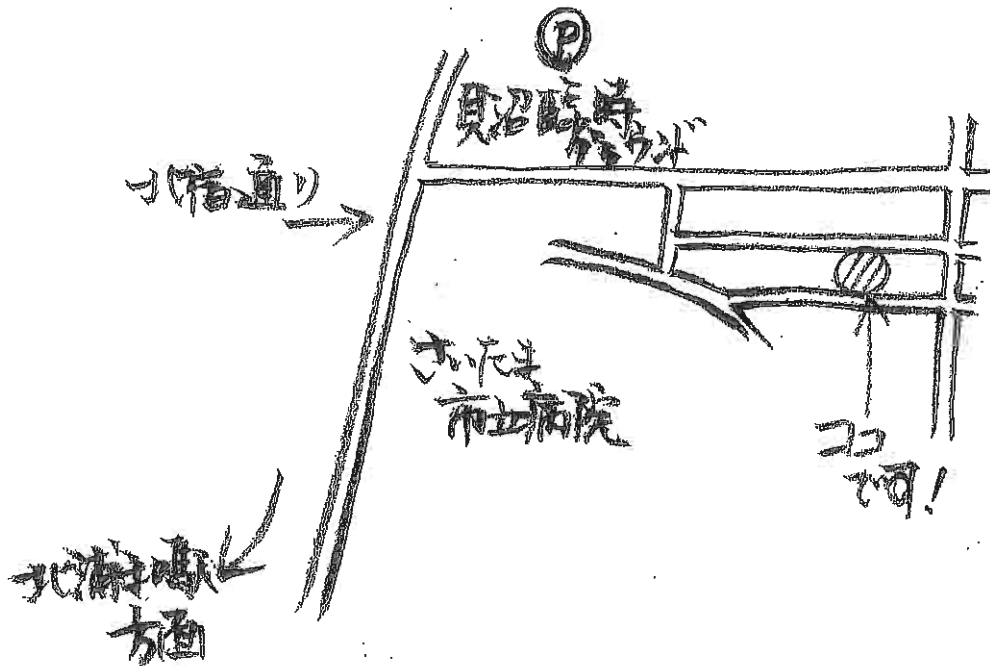 P
見沼臨時
グラウンド
さいたま
市立病院
ココ
北浦和駅
方面